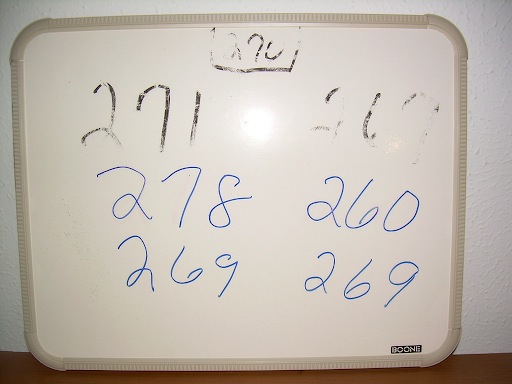 270
271 267
278 260
269 269
BOONE